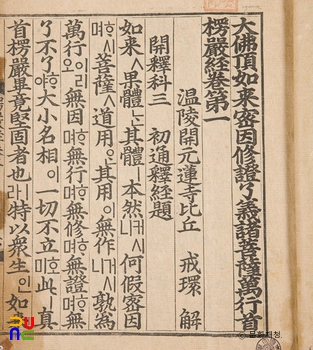 大佛頂如来密因修證了義諸菩薩萬行首
楞嚴經卷第一
温陵開元蓮寺比丘 戒環 解
開釋科三 初通釋經題
如来ㅅ果體其體ㅣ本然何假密因
菩薩ㅅ道用其用無作孰爲
萬行이리오無因ᄒᆞ며無行ᄒᆞ며無修ᄒᆞ며無證ᄒᆞ며無
了不了ᄒᆞ야大小名相이一切不立此ㅣ眞
首楞嚴畢竟堅固者也ㅣ라特以衆生인如来
문화재청